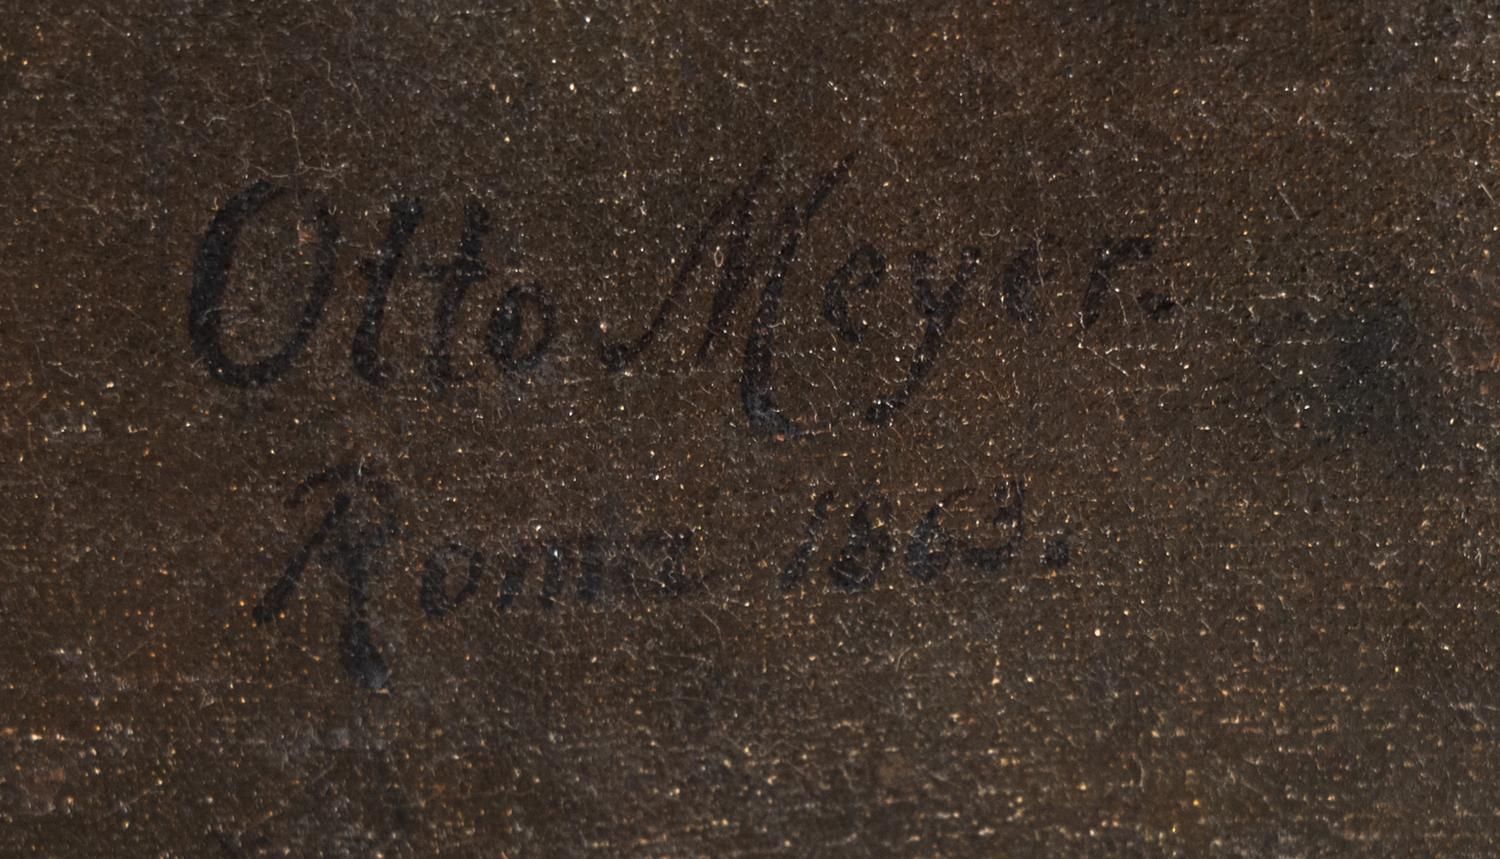 Otto Meyer.
Roma 1863.